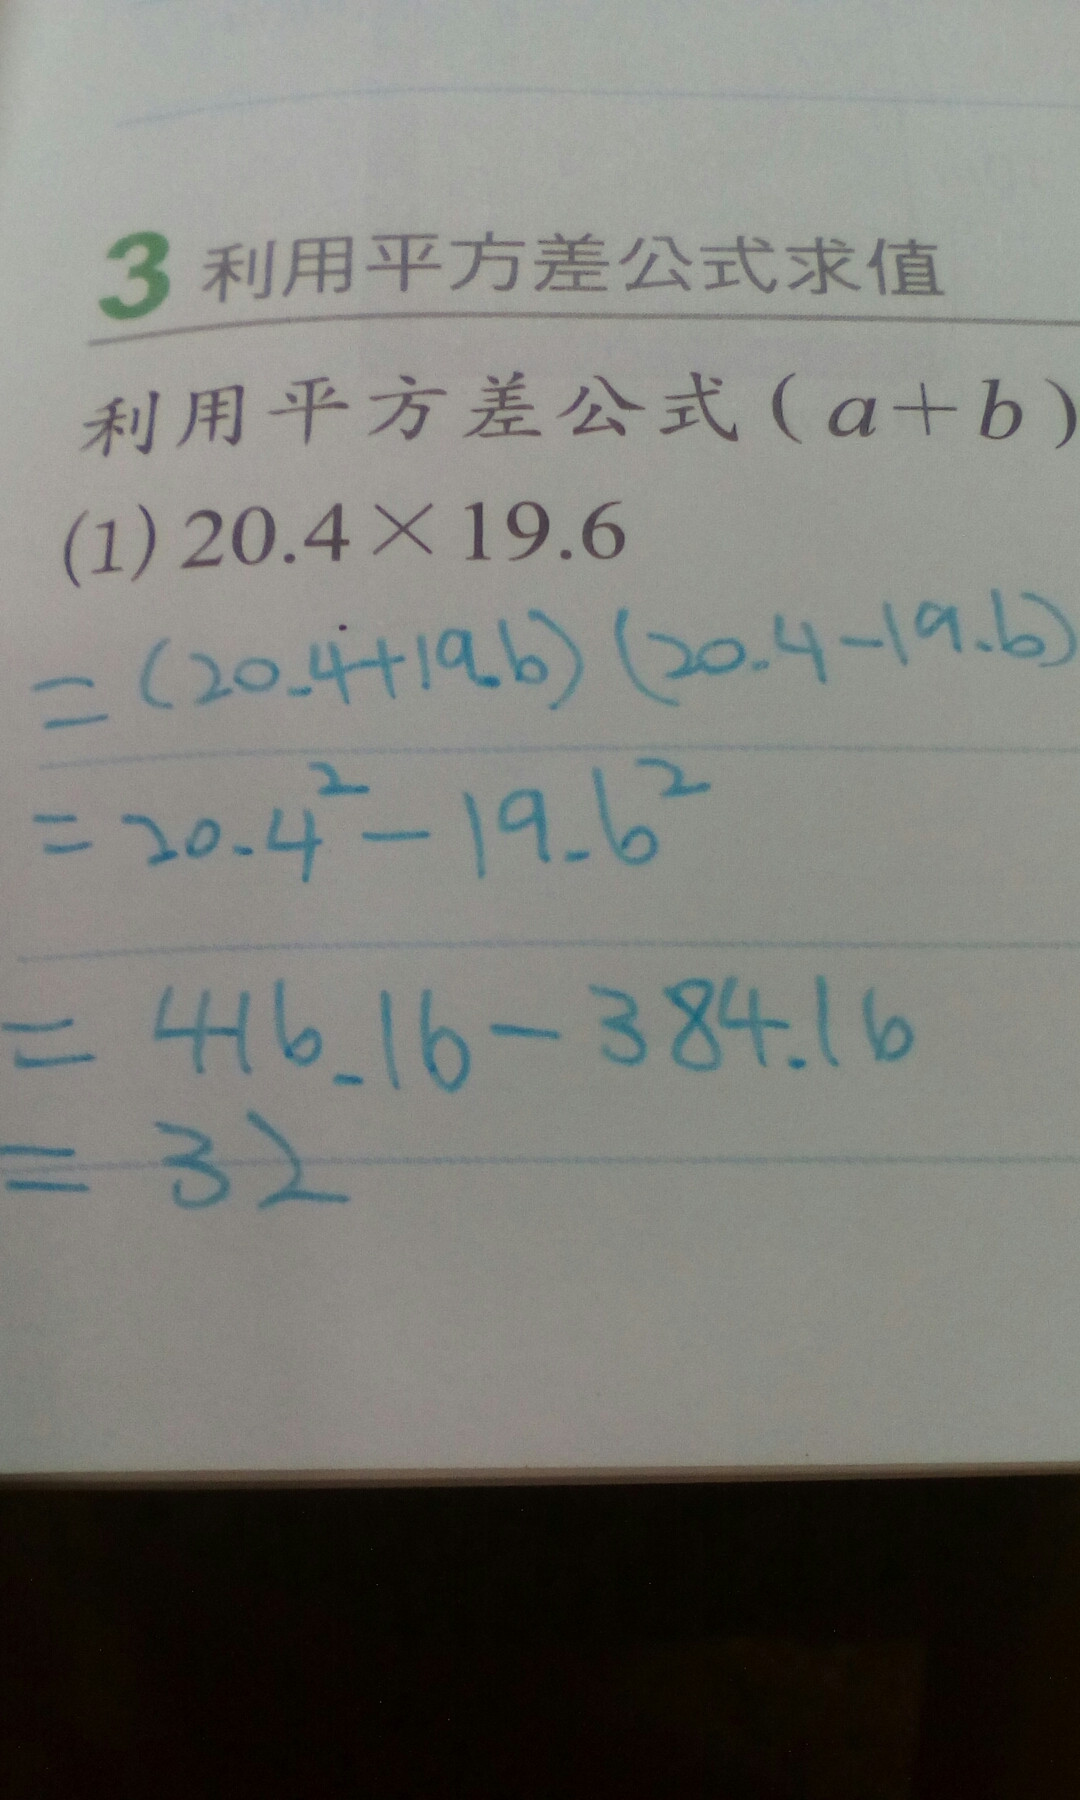 3 利用平方差公式求值
利用平方差公式(a+b)
(1) 20.4×19.6
=(20.4+19.6)(20.4-19.6)
=20.4²-19.6²
=416.16-384.16
=32